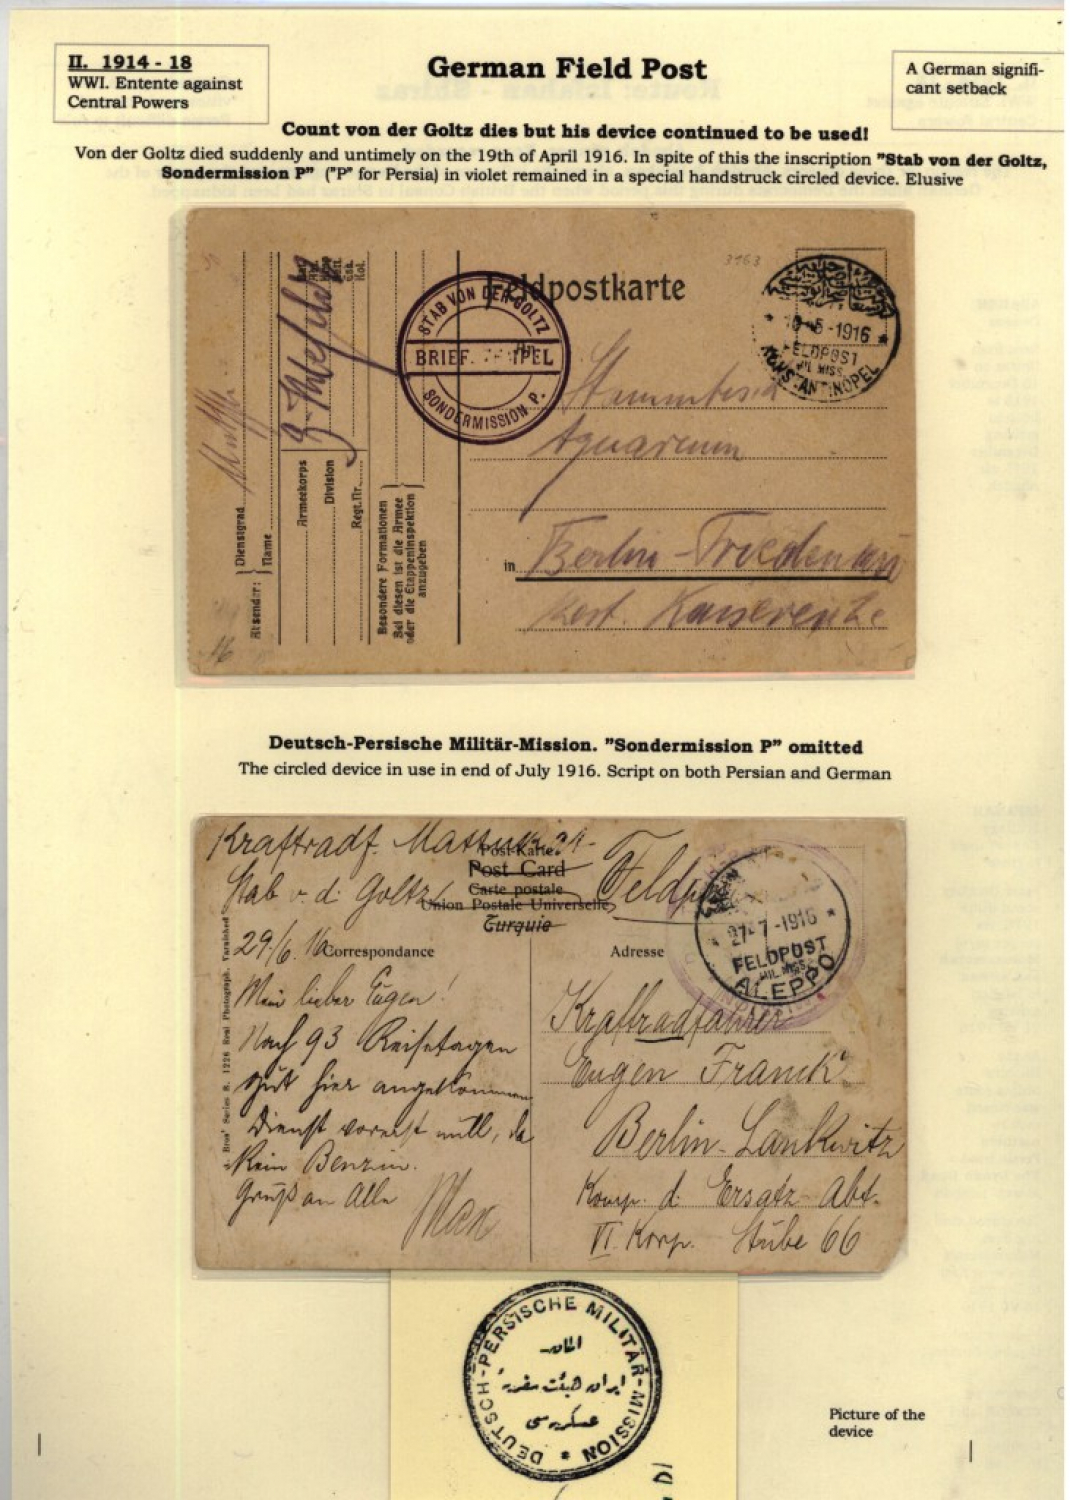 II. 1914 - 18
WWI. Entente against
Central Powers
German Field Post
A German signifi-
cant setback
Count von der Goltz dies but his device continued to be used!
Von der Goltz died suddenly and untimely on the 19th of April 1916. In spite of this the inscription "Stab von der Goltz,
Sondermission P" ("P" for Persia) in violet remained in a special handstruck circled device. Elusive
3163
Feldpostkarte
STAB VON DER GOLTZ
BRIEF STEMPEL
SONDERMISSION P.
-5-1916
FELDPOST
MIL. MISS.
KONSTANTINOPEL
Absender:
Dienstgrad
Name
Armeekorps
Division
Regt. Nr.
Besondere Formationen
Bei diesen ist die Armee
oder die Etappeninspektion
anzugeben
Stammtisch
Aquarium
in Berlin-Friedenau
Rest.
Deutsch-Persische Militär-Mission. "Sondermission P" omitted
The circled device in use in end of July 1916. Script on both Persian and German
Kraftradf.
Stab v. d. Goltz
Post-Karte
Post Card
Carte postale
Union Postale Universelle
Turquie
27-7-1916
FELDPOST
MIL. MISS.
ALEPPO
Bros' Series S. 1226 Real Photograph. Varnished
29/6. 16
Correspondance
Mein lieber Eugen!
Nach 93 Reisetagen
gut hier angekommen
Dienst vorerst null, da
Kein Benzin.
Gruß an Alle
Max
Adresse
Kraftradfahrer
Eugen Franck
Berlin-Lankwitz
Komp. d. Ersatz Abt.
VI. Korp. Stube 66
DEUTSCH-PERSISCHE MILITÄR-MISSION
ایران هیئت سفریه
عسکریه سی
Picture of the
device